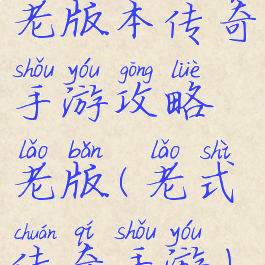 老版本传奇
shǒu yóu gōng lüè
手游攻略
lǎo bǎn lǎo shì
老版(老式
chuán qí shǒu yóu
传奇手游)